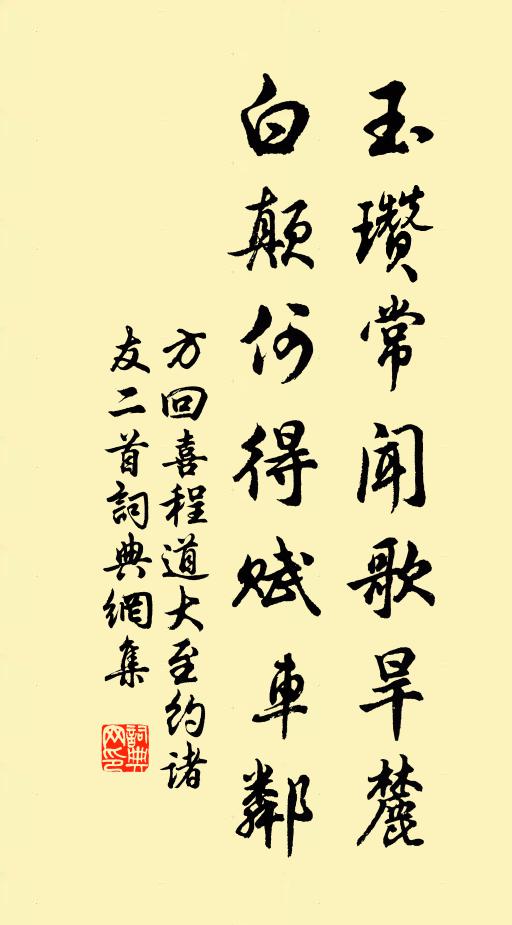 玉瓚常聞歌旱麓
白顛何得賦車鄰
方回喜程道大至約諸
友二首詞典網集
詞典
网印